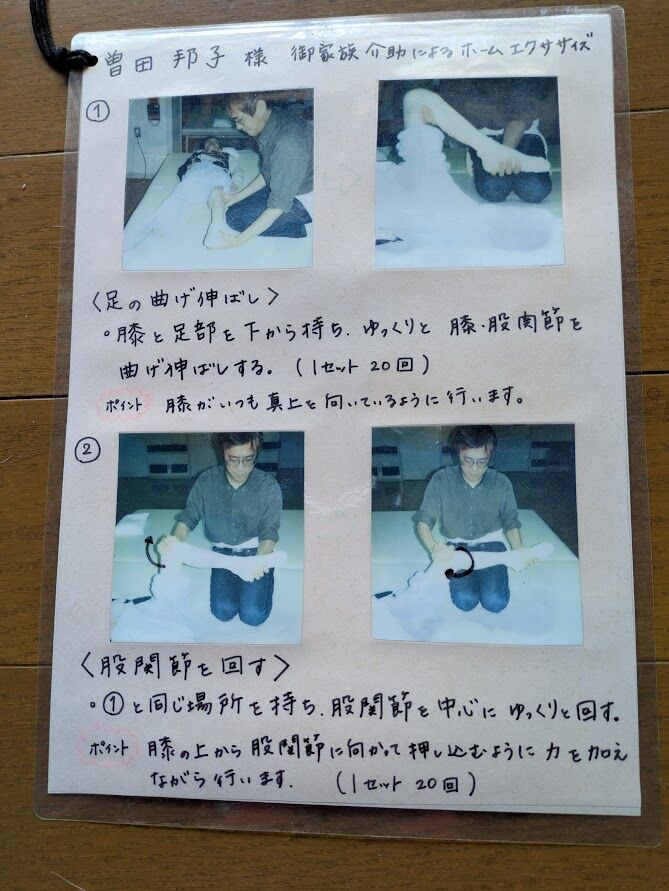 曽田 邦子 様 御家族 介助による ホーム エクササイズ
①
〈足の曲げ伸ばし〉
・膝と足部を下から持ち、ゆっくりと 膝・股関節を
曲げ伸ばしする。(1セット 20回)
ポイント 膝がいつも真上を向いているように行います。
②
〈股関節を回す〉
・①と同じ場所を持ち、股関節を中心に ゆっくりと回す。
ポイント 膝の上から股関節に向かって押し込むように力を加え
ながら行います. (1セット 20回)